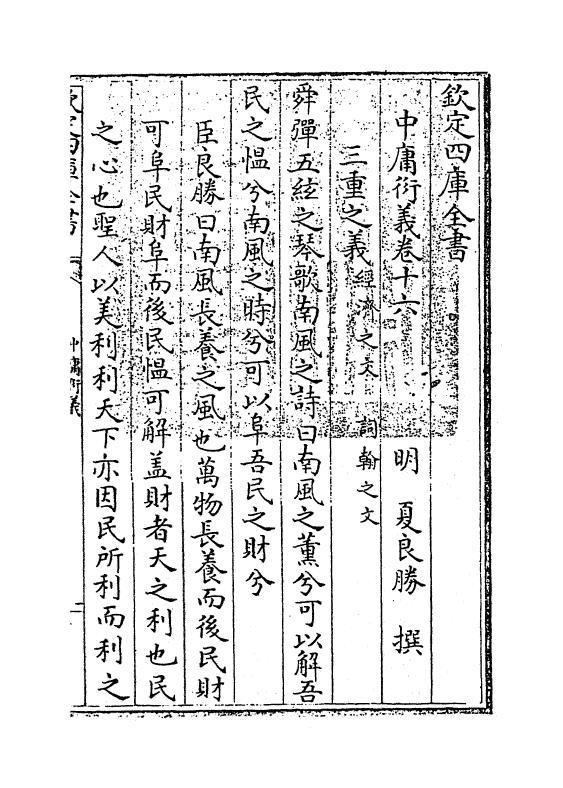 欽定四庫全書
中庸衍義卷十六 明 夏良勝 撰
三重之義 經濟之文 詞翰之文
舜彈五絃之琴歌南風之詩曰南風之薰兮可以解吾
民之愠兮南風之時兮可以阜吾民之財兮
臣良勝曰南風長養之風也萬物長養而後民財
可阜民財阜而後民愠可解盖財者天之利也民
之心也聖人以美利利天下亦因民所利而利之
欽定四庫全書 中庸衍義 一